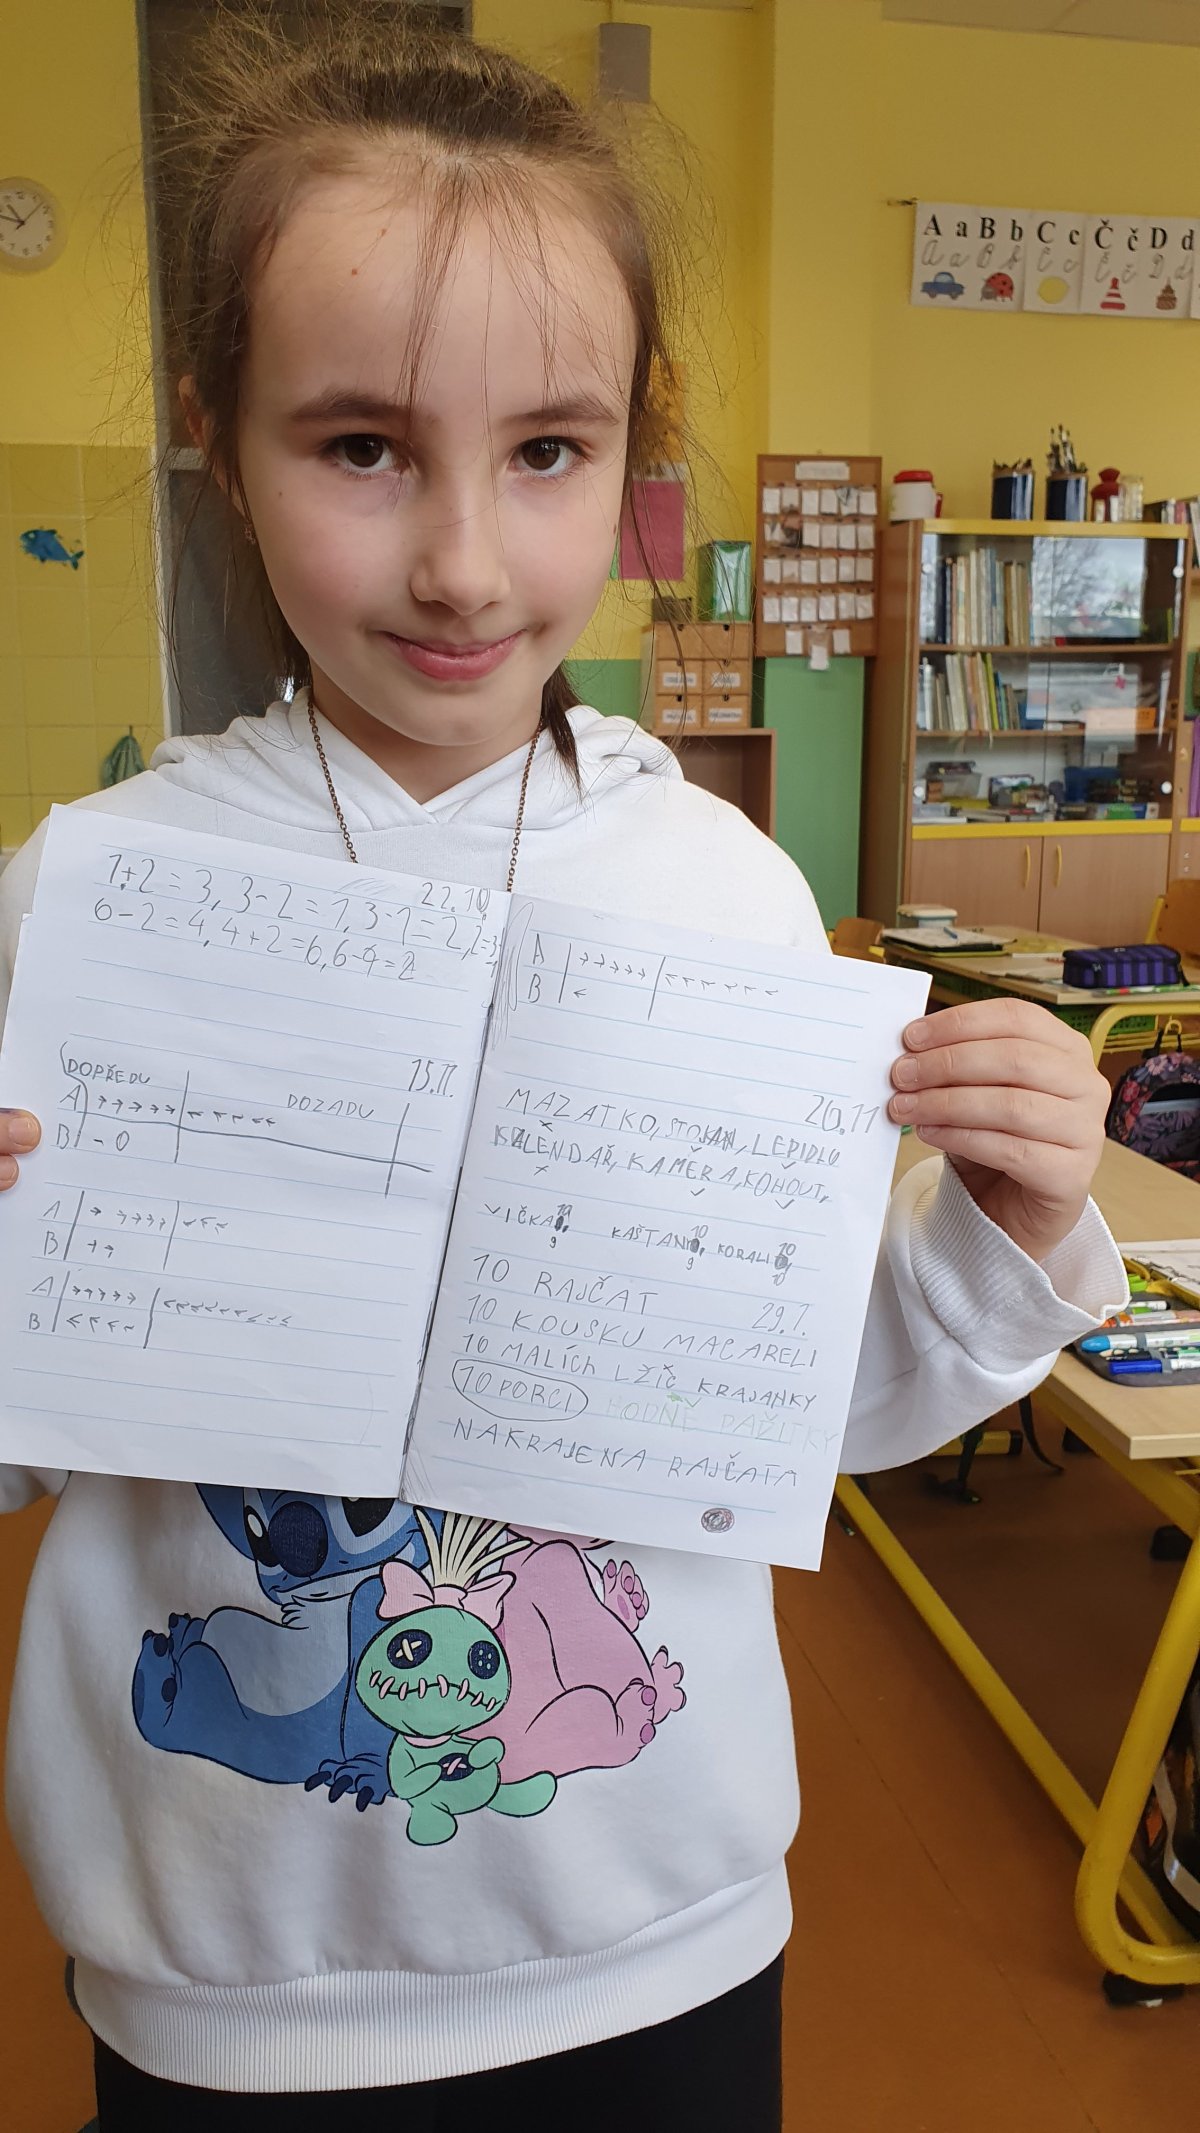 A a B b C c Č č D d
1+2=3, 3-2=1, 3-1=2, 2=3-1
22.10.
6-2=4, 4+2=6, 6-4=2
15.11.
DOPŘEDU
DOZADU
A →→→→→ ←←←←←
B - 0
A → →→→→ ←←←
B →→
A →→→→→ ←←←←←←←←←
B ←←←←
A →→→→→ ←←←←←←
B ←
26.11
MAZATKO, STOJAN, LEPIDLO
KALENDAŘ, KAMĚRA, KOHOUT,
VIČKA 10 9 KAŠTANI 10 9 KORALI 10 10
10 RAJČAT 29.1.
10 KOUSKU MACARELI
10 MALÍCH LŽÍČ KRAJANKY
10 PORCI HODNĚ PAŽITKY
NAKRAJENA RAJČATA